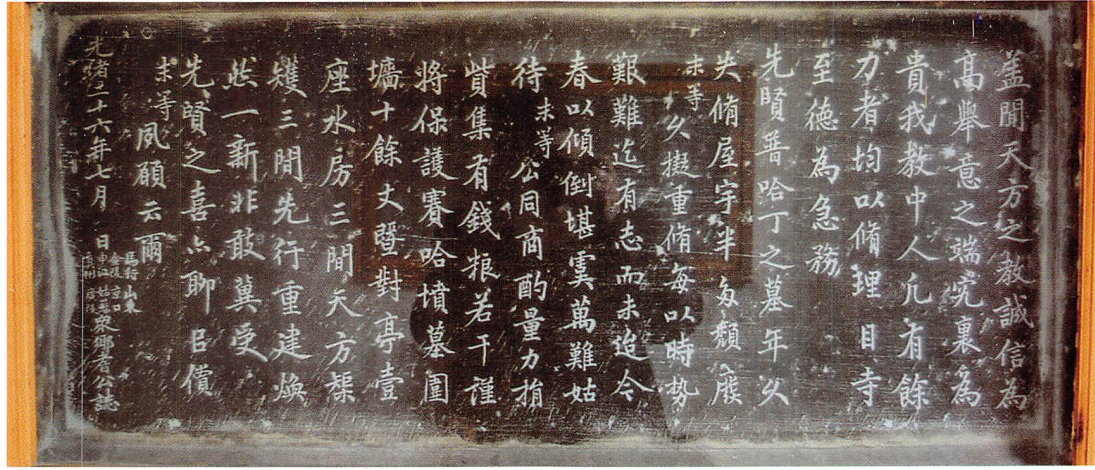 蓋聞天方之教誠信為
高舉意之端究裏為
貴我教中人凢有餘
力者均以脩理目寺
至德為急務
先賢普哈丁之墓年久
失脩屋宇半多頽廢
末等久擬重脩每以時勢
艱難迄有志而未迨今
春以傾倒堪虞萬難姑
待末等公同商酌量力捐
貲集有錢粮若干謹
將保護賽哈墳墓圍
墻十餘丈曁對亭壹
座水房三間天方槼
矱三間先行重建煥
然一新非敢冀受
先賢之喜点聊㠯償
末等夙願云爾
光緒二十六年七月 日
山東
金陵 京口
衆鄉耆公誌